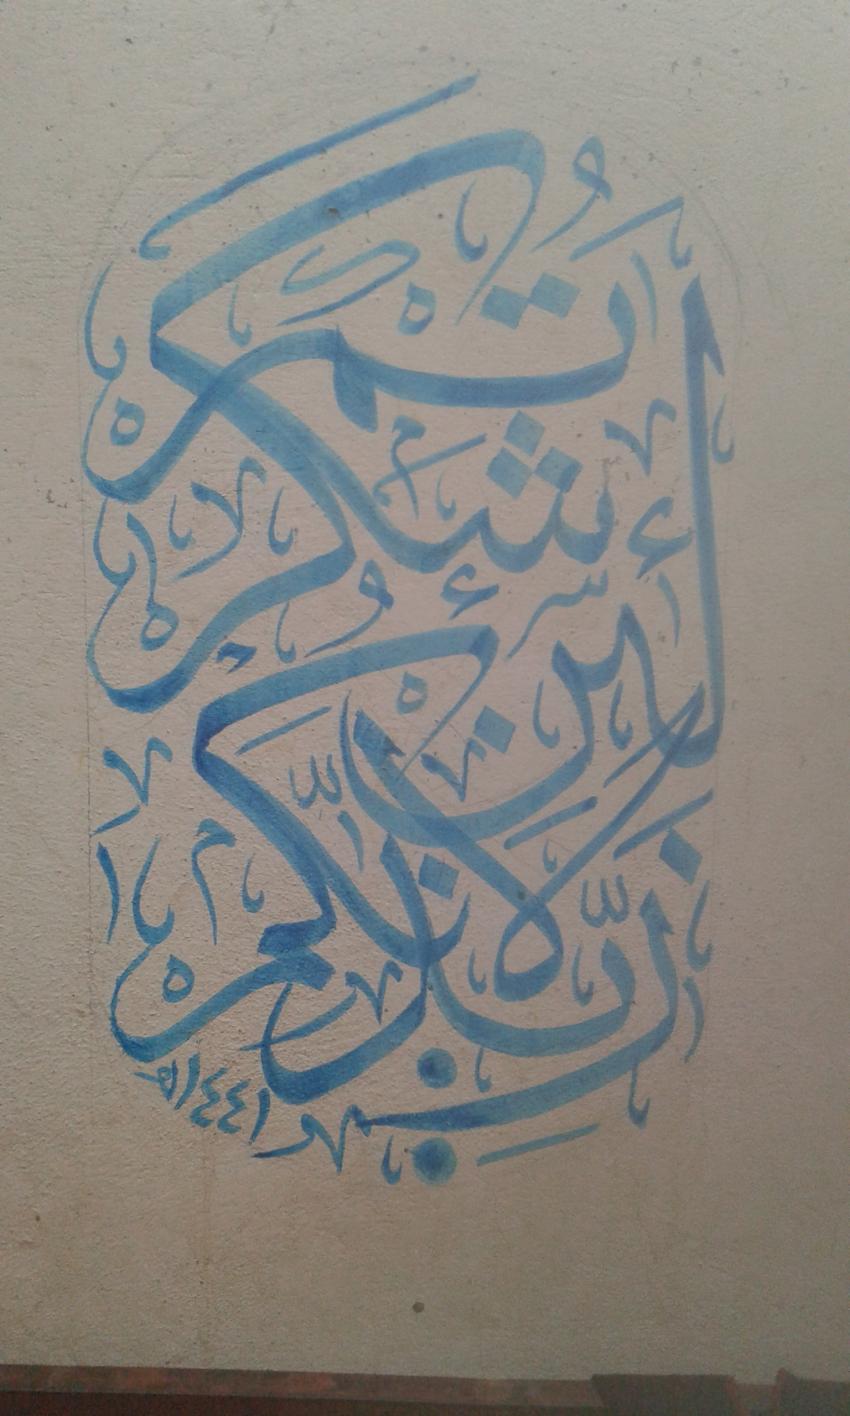 لَئِنْ شَكَرْتُمْ لَأَزِيدَنَّكُمْ
١٤٤١هـ